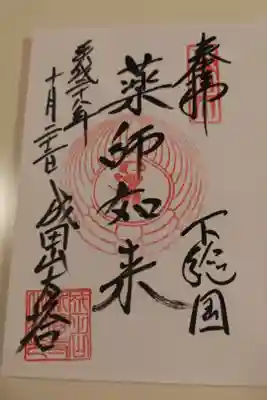 奉拝
下総国
薬師如来
平成二十八年
十月二十二日
成田山